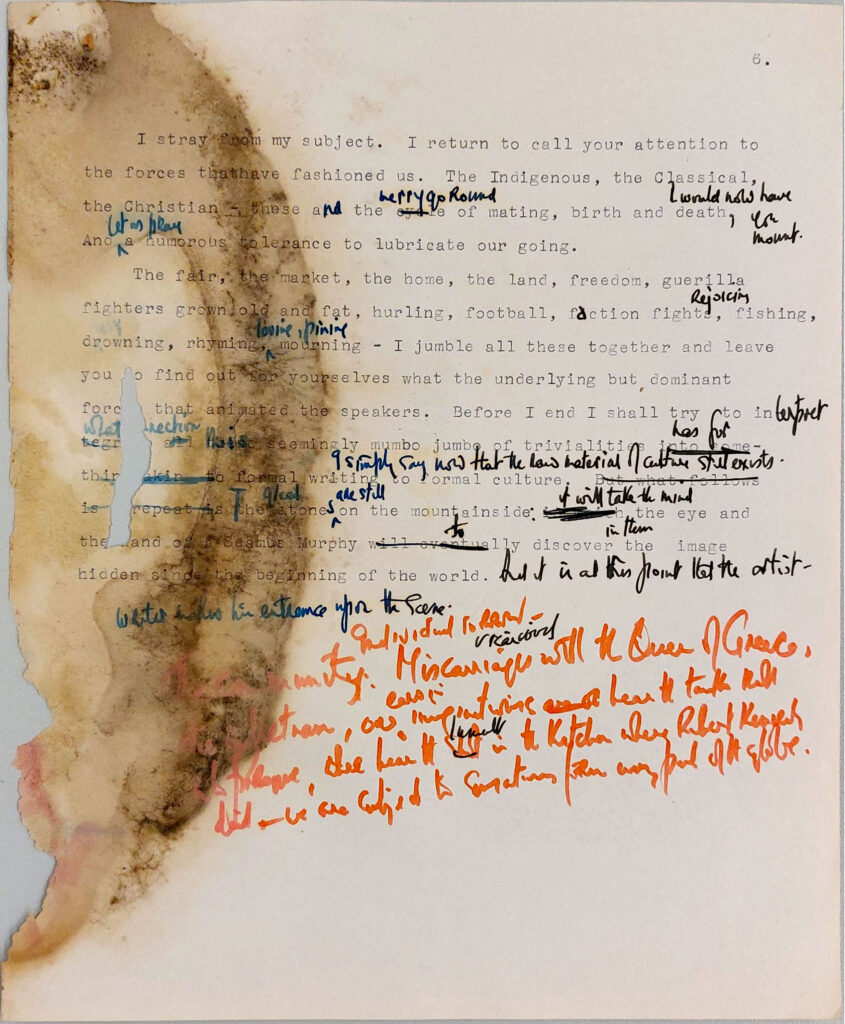 6.
I stray from my subject. I return to call your attention to
the forces thathave fashioned us. The Indigenous, the Classical,
merrygoRound
I would now have
the Christian - these and the cycle of mating, birth and death, you
mount.
let us pray
And a humorous tolerance to lubricate our going.
The fair, the market, the home, the land, freedom, guerilla
Rejoicing
fighters grown old and fat, hurling, football, faction fights, fishing,
loving, pining
drowning, rhyming, mourning - I jumble all these together and leave
you to find out for yourselves what the underlying but dominant
force that animated the speakers. Before I end I shall try to interpret
what
this
has for
seemingly mumbo jumbo of trivialities into some-
I simply say now that the raw material of culture still exists.
to formal writing to formal culture. But what follows
great
are still
it will take the mind
is repeat is the stone on the mountainside: the eye and
to
in them
the hand of a Seamus Murphy will eventually discover the image
hidden since the beginning of the world. And it is at this point that the artist-
writer makes his entrance upon the scene.
individual
community. Miscarriages with the Queen of Greece,
hear the tanks
in the Kitchen where Robert Kennedy
died - we are subject to from every part of the globe.